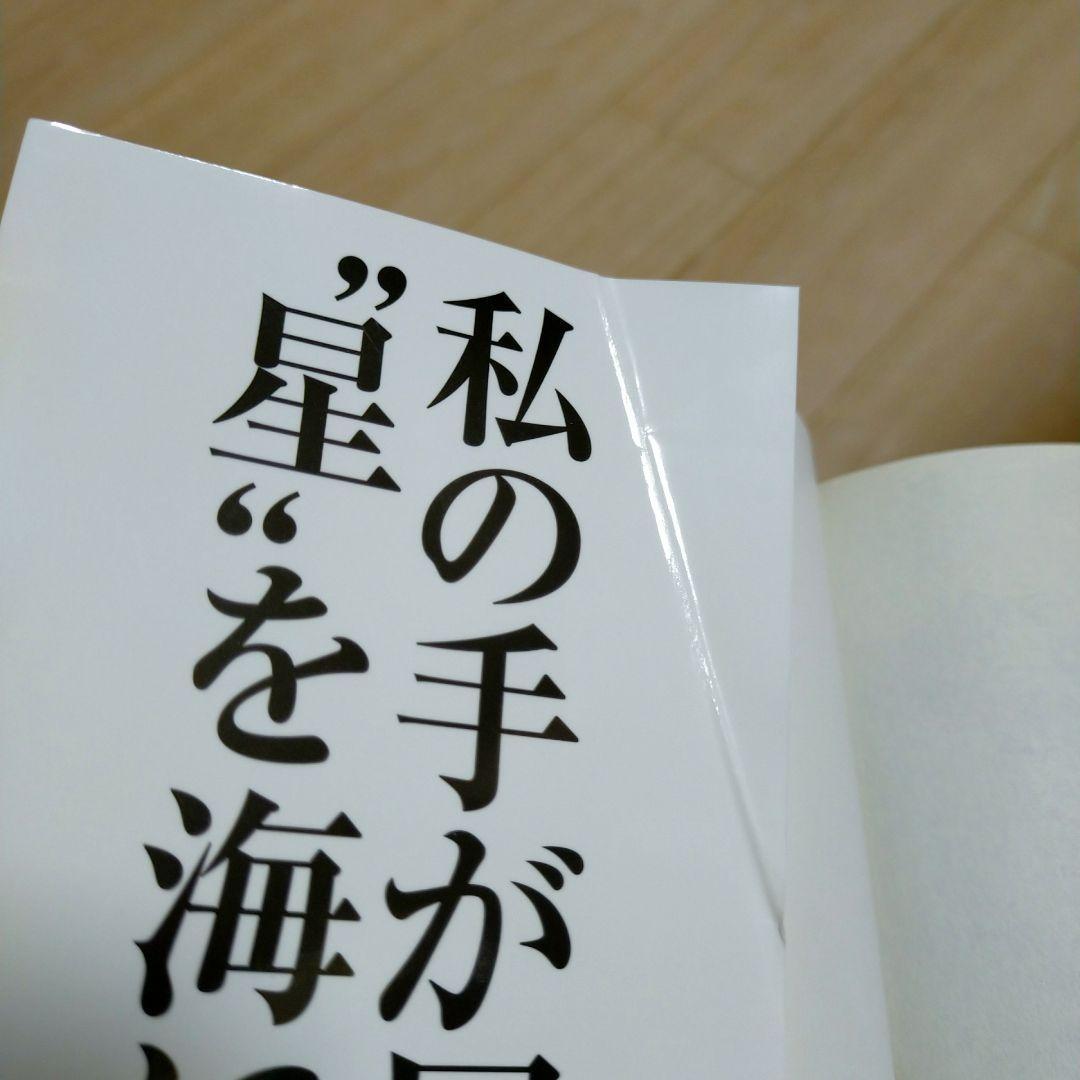 私の手が
”星“を海